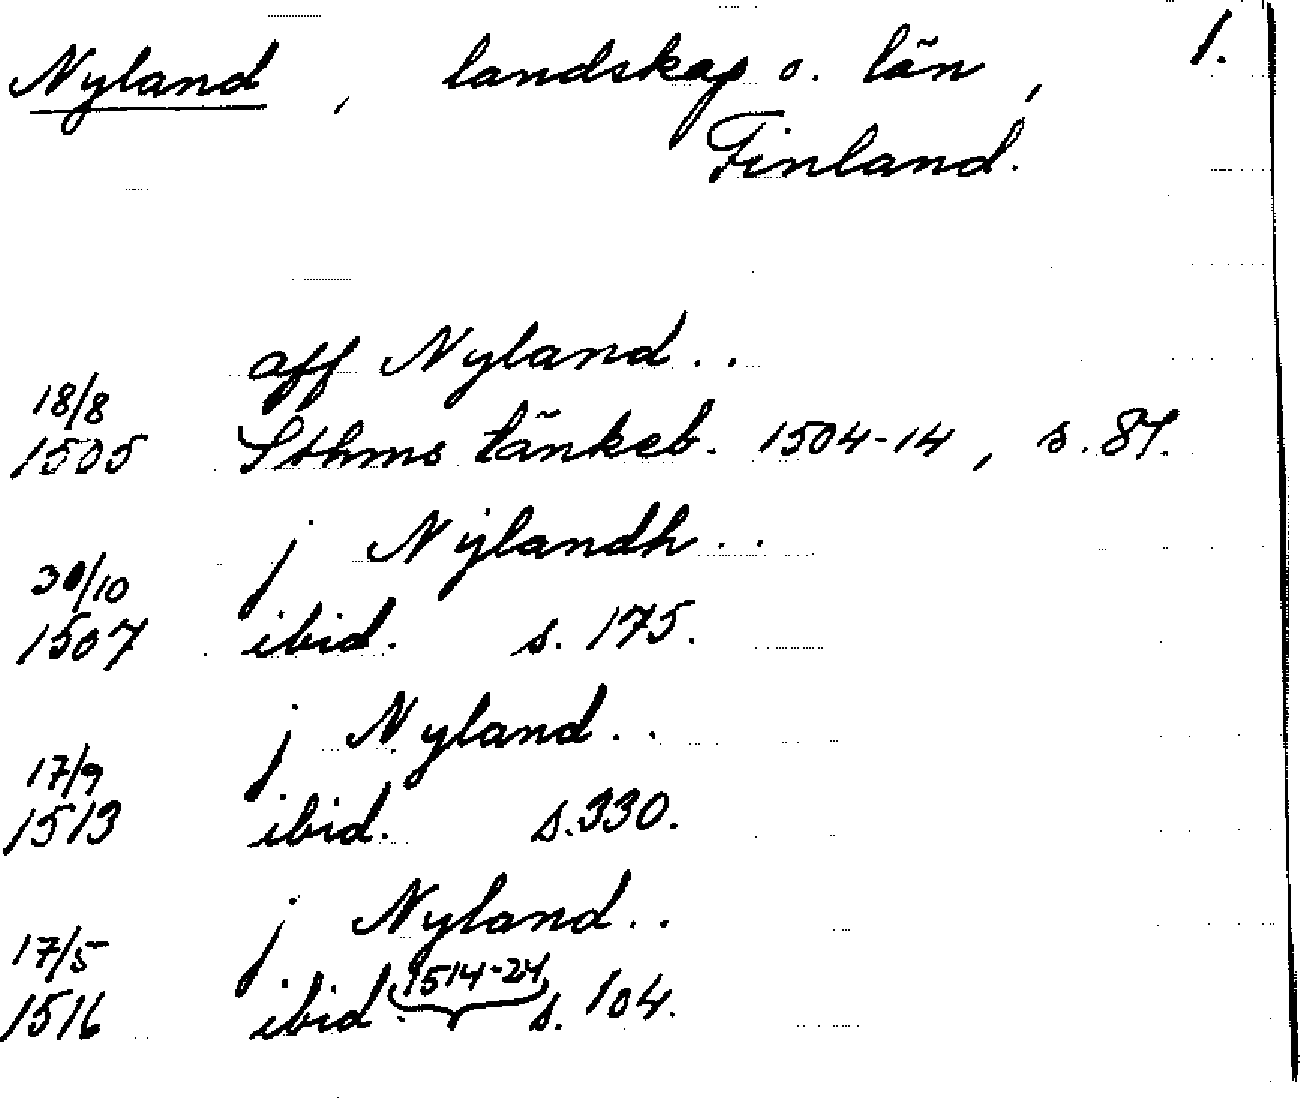 Nyland, landskap o. län, 1.
Finland.
aff Nyland..
18/8
1505 Sthms tänkeb. 1504-14, s. 87.
j Nÿlandh..
/10
1507 ibid. s. 175.
j Nyland..
17/9
1513 ibid. s. 330.
j Nyland..
17/5 1514-24
1516 ibid. s. 104.